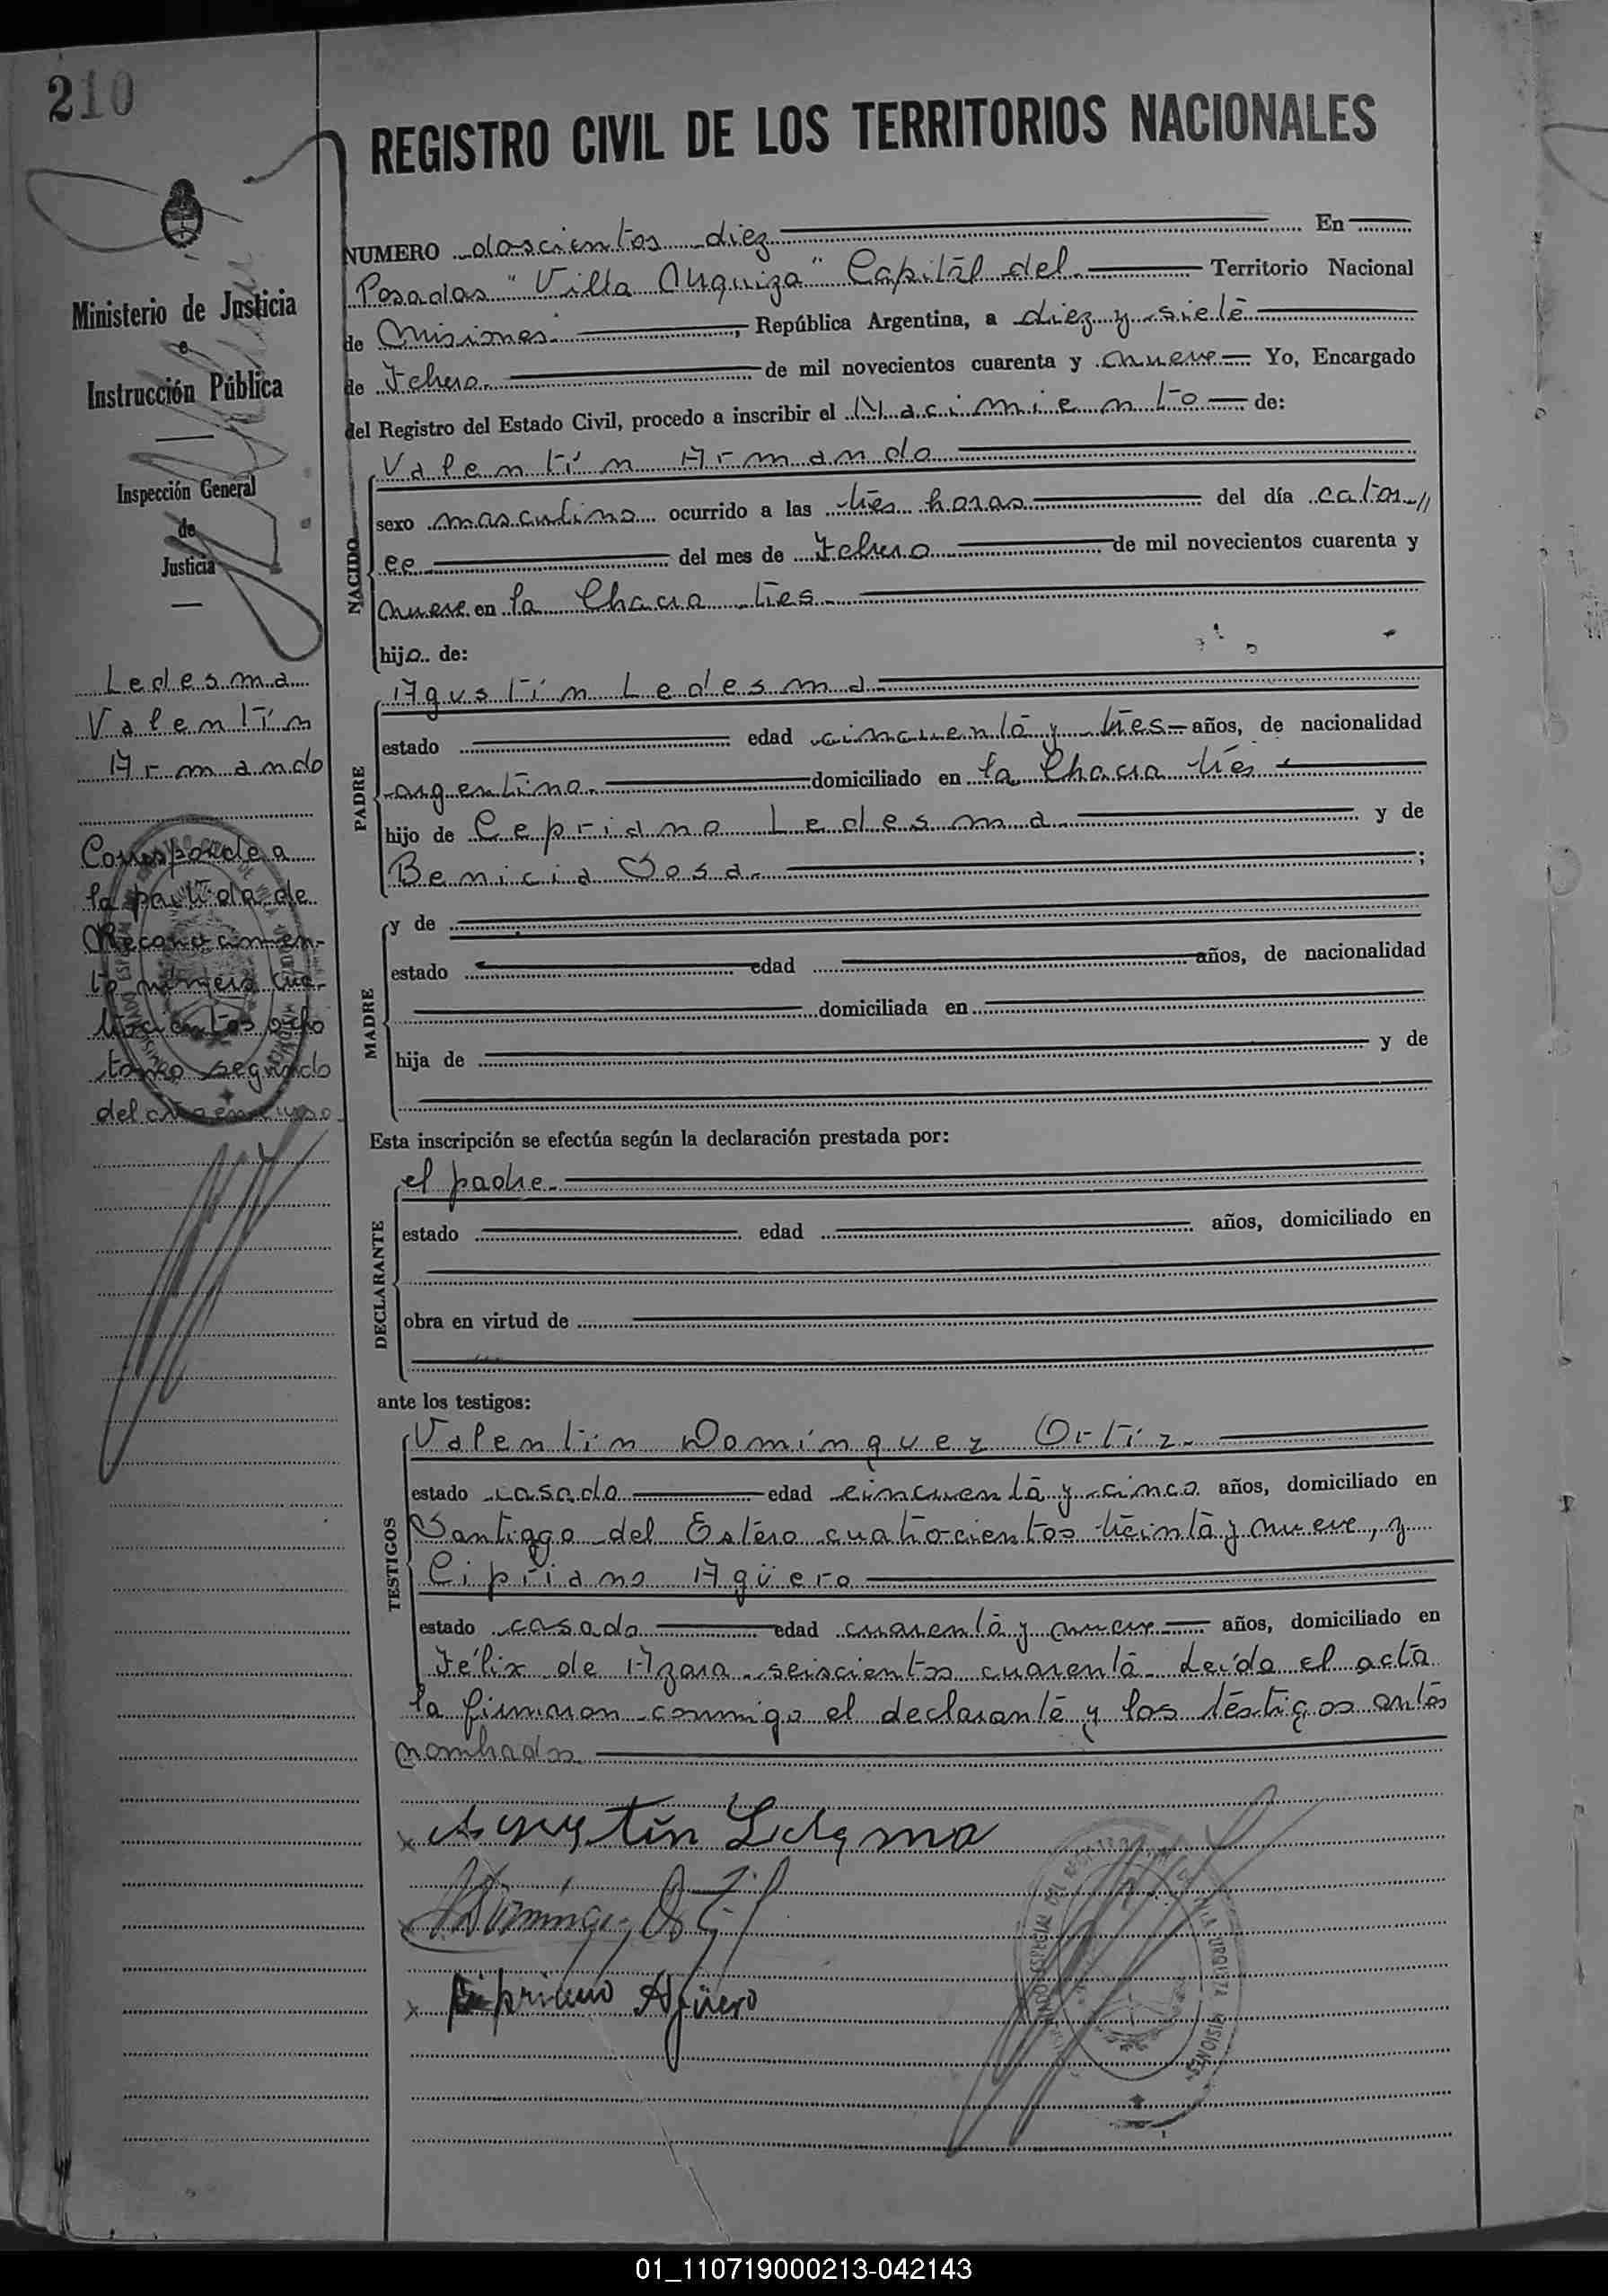 210
REGISTRO CIVIL DE LOS TERRITORIOS NACIONALES
Ministerio de Justicia
e
Instrucción Pública
Inspección General
de
Justicia
Ledesma
Valentín
Armando
Corresponde a
la partida de
Reconocimien-
to número cua-
trocientos ocho
tomo segundo
del año en curso
NUMERO doscientos diez En
Posadas "Villa Urquiza" Capital del Territorio Nacional
de Misiones, República Argentina, a diez y siete
de Febrero de mil novecientos cuarenta y nueve Yo, Encargado
del Registro del Estado Civil, procedo a inscribir el Nacimiento de:
NACIDO
Valentín Armando
sexo masculino ocurrido a las tres horas del día cator//
ce del mes de Febrero de mil novecientos cuarenta y
nueve en la Chacra tres
hijo de:
PADRE
Agustín Ledesma
estado edad cincuenta y tres años, de nacionalidad
argentino domiciliado en la Chacra tres
hijo de Cepriano Ledesma y de
Benicia Sosa ;
MADRE
y de
estado edad años, de nacionalidad
domiciliada en
hija de y de
Esta inscripción se efectúa según la declaración prestada por:
DECLARANTE
el padre
estado edad años, domiciliado en
obra en virtud de
ante los testigos:
TESTIGOS
Valentín Domínguez Ortíz
estado casado edad cincuenta y cinco años, domiciliado en
Santiago del Estero cuatrocientos treinta y nueve, y
Cipriano Agüero
estado casado edad cuarenta y nueve años, domiciliado en
Félix de Azara seiscientos cuarenta. Leída el acta
la firmaron conmigo el declarante y los testigos antes
nombrados
x Agustín Ledesma
x Cipriano Agüero
01_110719000213-042143